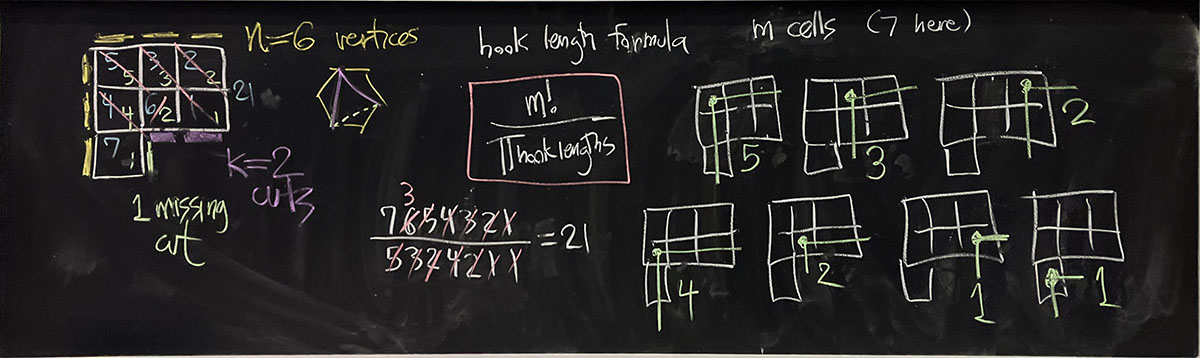 n=6 vertices
hook length formula
m cells (7 here)
5 3 2
5 3 2
4 6 1
4 2 1
21
7
k=2
cuts
1 missing
cut
m!
∏ hook lengths
7 6 5 4 3 2 1
3
5 3 2 4 2 1 1
=21
5
3
2
4
2
1
1